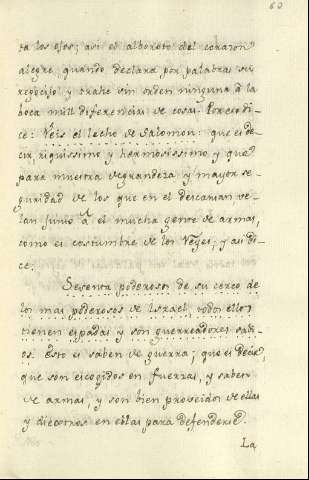 60
ra los ojos; asi el alboroto del corazon
alegre, quando declara por palabras su
regocijo y trahe sin orden ninguna à la
boca mill diferencias de cosas. Por eso di-
ce: Veis el lecho de Salomon: que es de
cir, riquissimo y hermosissimo y que
para muestra de grandeza y mayor se-
guridad de los que en el descansan ve-
lan junto à el mucha gente de armas,
como es costumbre de los Reyes; y asi di-
ce:
Sesenta poderosos de su cerco de
los mas poderosos de Israel, todos ellos
tienen espadas y son guerreadores sabi-
os. Esto es saben de guerra; que es decir
que son escogidos en fuerzas, y saber
de armas, y son bien proveidos de ellas
y diestros en ellas para defenderse.
La